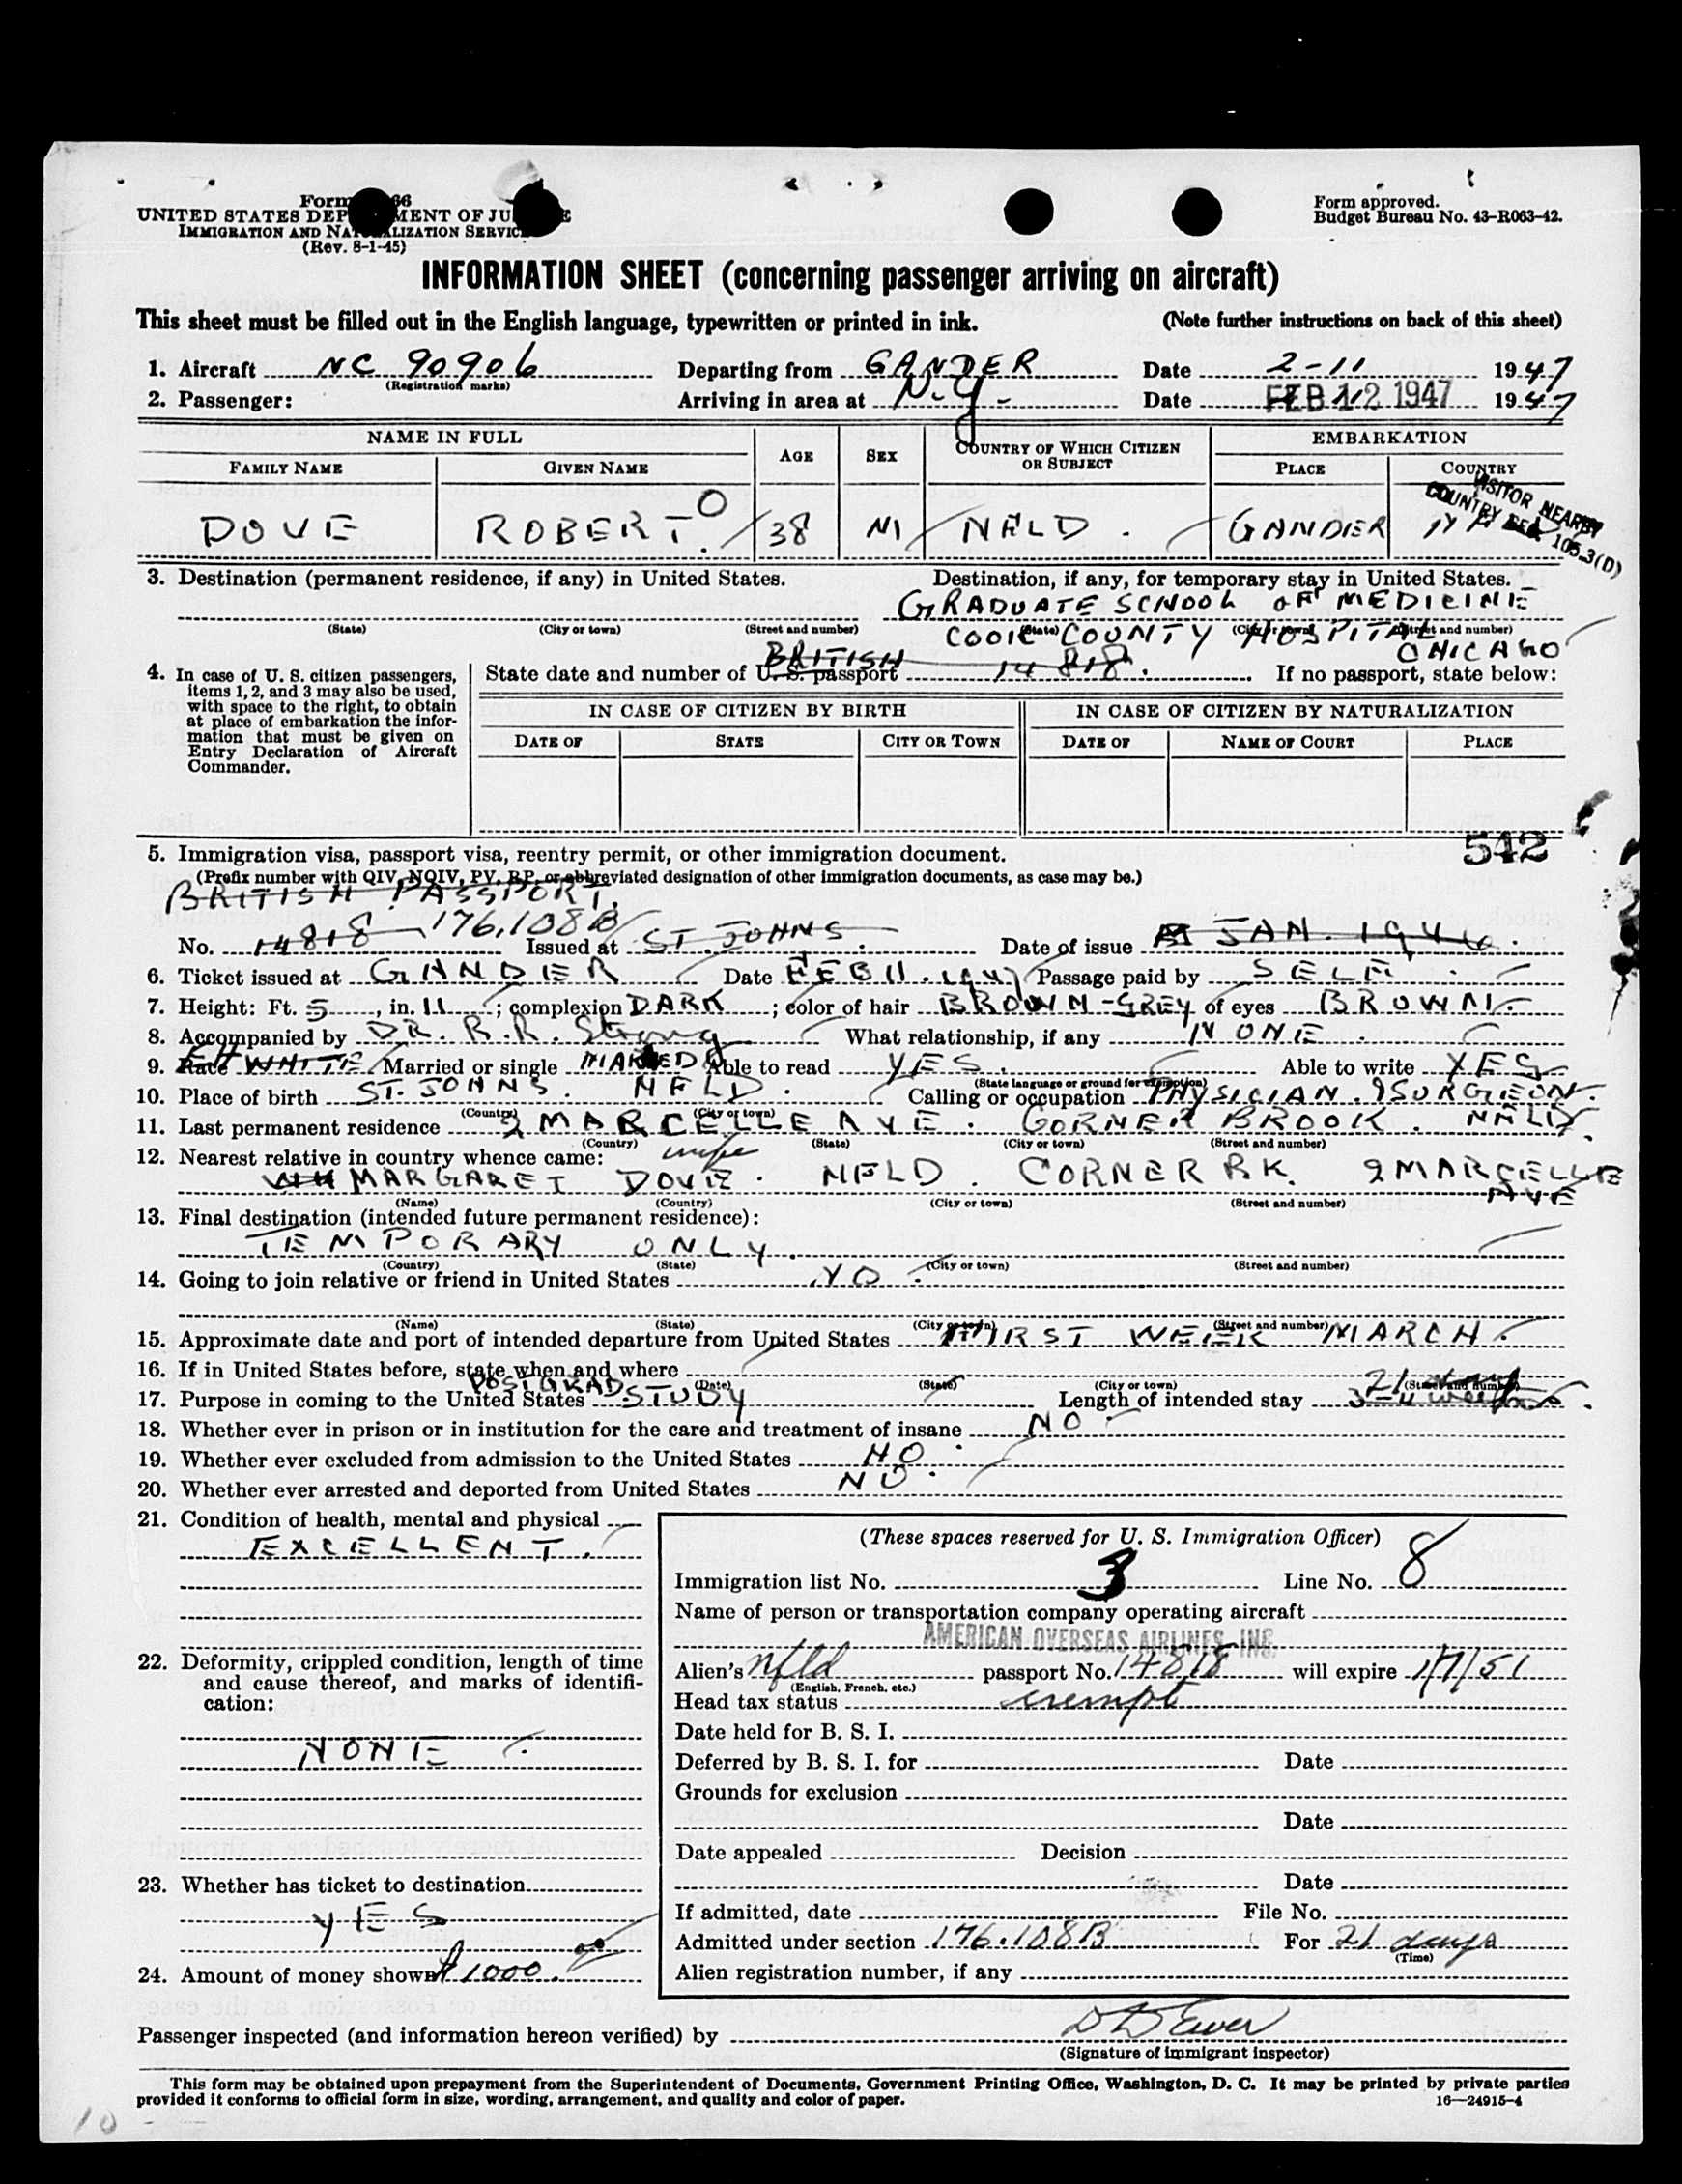 Form 66
UNITED STATES DEP MENT OF JU E
IMMIGRATION AND NAT ALIZATION SERVIC
(Rev. 8-1-45)
Form approved.
Budget Bureau No. 43-R063-42.
INFORMATION SHEET (concerning passenger arriving on aircraft)
This sheet must be filled out in the English language, typewritten or printed in ink. (Note further instructions on back of this sheet)
1. Aircraft NC 90906 Departing from GANDER Date 2-11 1947
(Registration marks)
2. Passenger: Arriving in area at N.Y. Date FEB 12 1947 1947
NAME IN FULL AGE SEX COUNTRY OF WHICH CITIZEN OR SUBJECT EMBARKATION
FAMILY NAME GIVEN NAME PLACE COUNTRY
VISITOR NEARBY
COUNTRY SEC. 105.3(D)
DOVE ROBERT O 38 M NFLD. GANDER
3. Destination (permanent residence, if any) in United States. Destination, if any, for temporary stay in United States.
GRADUATE SCHOOL OF MEDICINE
(State) (City or town) (Street and number) (State) (City or town) (Street and number)
COOK COUNTY HOSPITAL
CHICAGO
4. In case of U. S. citizen passengers, items 1, 2, and 3 may also be used, with space to the right, to obtain at place of embarkation the information that must be given on Entry Declaration of Aircraft Commander.
BRITISH
State date and number of U. S. passport 14818. If no passport, state below:
IN CASE OF CITIZEN BY BIRTH IN CASE OF CITIZEN BY NATURALIZATION
DATE OF STATE CITY OR TOWN DATE OF NAME OF COURT PLACE
542
5. Immigration visa, passport visa, reentry permit, or other immigration document.
(Prefix number with QIV, NQIV, PV, RP, or abbreviated designation of other immigration documents, as case may be.)
BRITISH PASSPORT.
No. 14818 176.108B Issued at ST. JOHNS. Date of issue JAN. 1946.
6. Ticket issued at GANDER Date FEB 11. 1947 Passage paid by SELF.
7. Height: Ft. 5, in. 11; complexion DARK; color of hair BROWN-GREY of eyes BROWN.
8. Accompanied by DR. R.R. Strong What relationship, if any NONE.
9. Race WHITE Married or single MARRIED Able to read YES. Able to write YES
(State language or ground for exemption)
10. Place of birth ST. JOHNS. NFLD. Calling or occupation PHYSICIAN. & SURGEON.
(Country) (City or town)
11. Last permanent residence 2 MARCELLE AVE. CORNER BROOK. NFLD.
(Country) (State) (City or town) (Street and number)
12. Nearest relative in country whence came: wife
MARGARET DOVE. NFLD. CORNER BK. 2 MARCELLE AVE
(Name) (Country) (City or town) (Street and number)
13. Final destination (intended future permanent residence):
TEMPORARY ONLY.
(Country) (State) (City or town) (Street and number)
14. Going to join relative or friend in United States NO.
(Name) (State) (City or town) (Street and number)
15. Approximate date and port of intended departure from United States FIRST WEEK MARCH.
16. If in United States before, state when and where
(Date) (State) (City or town) (Street and number)
17. Purpose in coming to the United States POST GRAD. STUDY Length of intended stay 3-4 weeks. 21 days
18. Whether ever in prison or in institution for the care and treatment of insane NO
19. Whether ever excluded from admission to the United States NO.
20. Whether ever arrested and deported from United States NO.
21. Condition of health, mental and physical
EXCELLENT.
22. Deformity, crippled condition, length of time and cause thereof, and marks of identification:
NONE.
23. Whether has ticket to destination
YES
24. Amount of money shown $1000.00
(These spaces reserved for U. S. Immigration Officer)
Immigration list No. 3 Line No. 8
Name of person or transportation company operating aircraft
AMERICAN OVERSEAS AIRLINES INC.
Alien's Nfld passport No. 14818 will expire 1/7/51
(English, French, etc.)
Head tax status exempt
Date held for B. S. I.
Deferred by B. S. I. for Date
Grounds for exclusion
Date
Date appealed Decision
Date
If admitted, date File No.
Admitted under section 176.108B For 21 days
(Time)
Alien registration number, if any
Passenger inspected (and information hereon verified) by
(Signature of immigrant inspector)
This form may be obtained upon prepayment from the Superintendent of Documents, Government Printing Office, Washington, D. C. It may be printed by private parties
provided it conforms to official form in size, wording, arrangement, and quality and color of paper. 16—24915-4
10